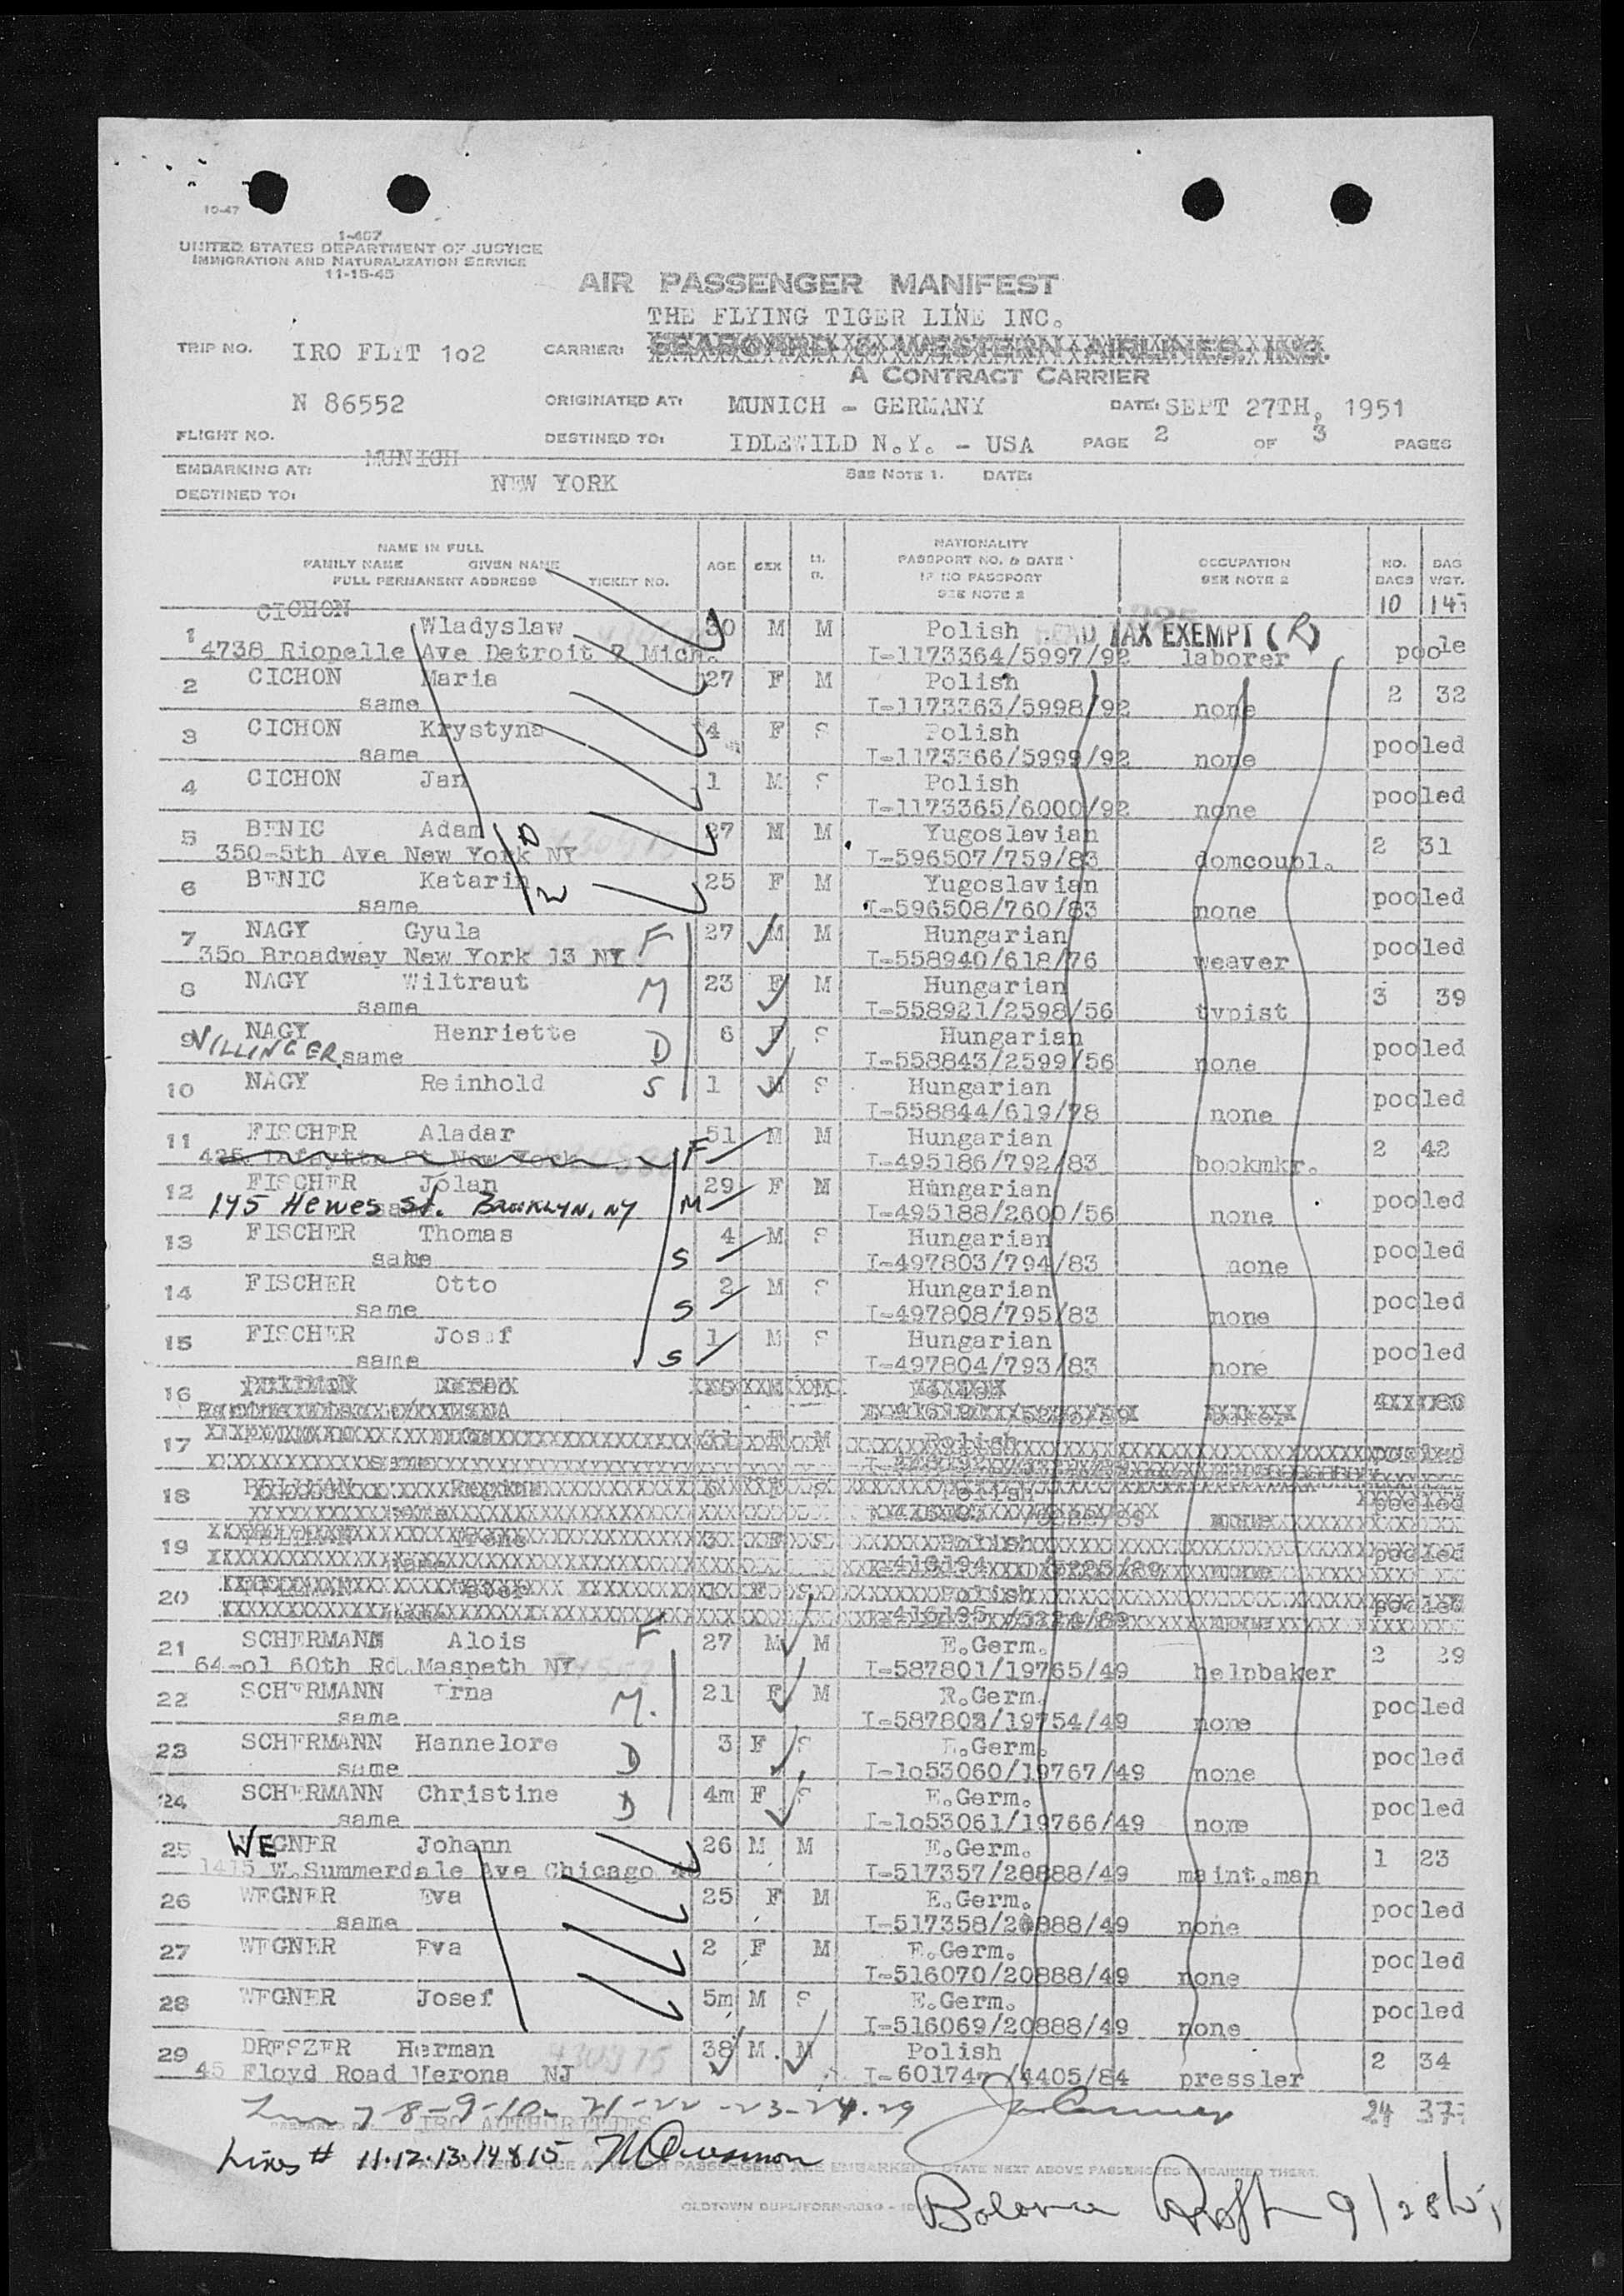 10-47
1-467
UNITED STATES DEPARTMENT OF JUSTICE
IMMIGRATION AND NATURALIZATION SERVICE
11-15-45
AIR PASSENGER MANIFEST
THE FLYING TIGER LINE INC.
TRIP NO. IRO FLIT 1o2 CARRIER: SEABOARD & WESTERN AIRLINES, INC.
A CONTRACT CARRIER
N 86552 ORIGINATED AT: MUNICH - GERMANY DATE: SEPT 27TH, 1951
FLIGHT NO. DESTINED TO: IDLEWILD N.Y. - USA PAGE 2 OF 3 PAGES
EMBARKING AT: MUNICH SEE NOTE 1. DATE:
DESTINED TO: NEW YORK
NAME IN FULL NATIONALITY
FAMILY NAME GIVEN NAME AGE SEX M. PASSPORT NO. & DATE OCCUPATION NO. BAG
FULL PERMANENT ADDRESS TICKET NO. S. IF NO PASSPORT SEE NOTE 2 BAGS WGT.
SEE NOTE 2
CICHON 10 147
1 Wladyslaw 30 M M Polish HEAD TAX EXEMPT (R)
4738 Riopelle Ave Detroit 7 Mich. I-1173364/5997/92 laborer poole
2 CICHON Maria 27 F M Polish 2 32
same I-1173363/5998/92 none
3 CICHON Krystyna 4 F S Polish pooled
same I-1173366/5999/92 none
4 CICHON Jan 1 M S Polish pooled
I-1173365/6000/92 none
5 BENIC Adam D 27 M M Yugoslavian 2 31
350-5th Ave New York NY I-596507/759/83 domcoupl.
6 BENIC Katarin W 25 F M Yugoslavian pooled
same I-596508/760/83 none
7 NAGY Gyula F 27 M M Hungarian pooled
35o Broadway New York 13 NY I-558940/618/76 weaver
8 NAGY Wiltraut M 23 F M Hungarian 3 39
same I-558921/2598/56 typist
9 NAGY Henriette D 6 F S Hungarian pooled
VILLINGER same I-558843/2599/56 none
10 NAGY Reinhold S 1 M S Hungarian pooled
I-558844/619/78 none
11 FISCHER Aladar F 51 M M Hungarian 2 42
425 Lafaytte St New York I-495186/792/83 bookmkr.
12 FISCHER Jolan M 29 F M Hungarian pooled
145 Hewes St. BROOKLYN, NY I-495188/2600/56 none
13 FISCHER Thomas 4 M S Hungarian pooled
same S I-497803/794/83 none
14 FISCHER Otto 2 M S Hungarian pooled
same S I-497808/795/83 none
15 FISCHER Josef 1 M S Hungarian pooled
same S I-497804/793/83 none
16
17 M Polish pooled
18 PELIMAN Polish pooled
19 3 F S Polish pooled
same none
20 F S Polish pooled
21 SCHERMANN Alois F 27 M M E.Germ. 2 29
64-o1 60th Rd.Maspeth NY I-587801/19765/49 helpbaker
22 SCHERMANN Erna M. 21 F M R.Germ. pooled
same I-587802/19754/49 none
23 SCHERMANN Hannelore D 3 F S E.Germ. pooled
same I-1o53060/19767/49 none
24 SCHERMANN Christine D 4m F S E.Germ. pooled
same I-1o53061/19766/49 none
25 WEGNER Johann 26 M M E.Germ. 1 23
1415 W.Summerdale Ave Chicago 40 I-517357/20888/49 maint.man
26 WEGNER Eva 25 F M E.Germ. pooled
same I-517358/20888/49 none
27 WEGNER Eva 2 F M E.Germ. pooled
I-516070/20888/49 none
28 WEGNER Josef 5m M S E.Germ. pooled
I-516069/20888/49 none
29 DRESZER Herman 38 M M Polish 2 34
45 Floyd Road Verona NJ 430975 I-601747/4405/84 pressler
7-8-9-10- 21-22-23-24.29 24 37
IRO AUTHORITIES
Lines # 11.12.13.14 & 15
AT WHICH PASSENGERS ARE EMBARKED, STATE NEXT ABOVE PASSENGERS EMBARKED THERE.
OLDTOWN DUPLIFORM
9/28/51